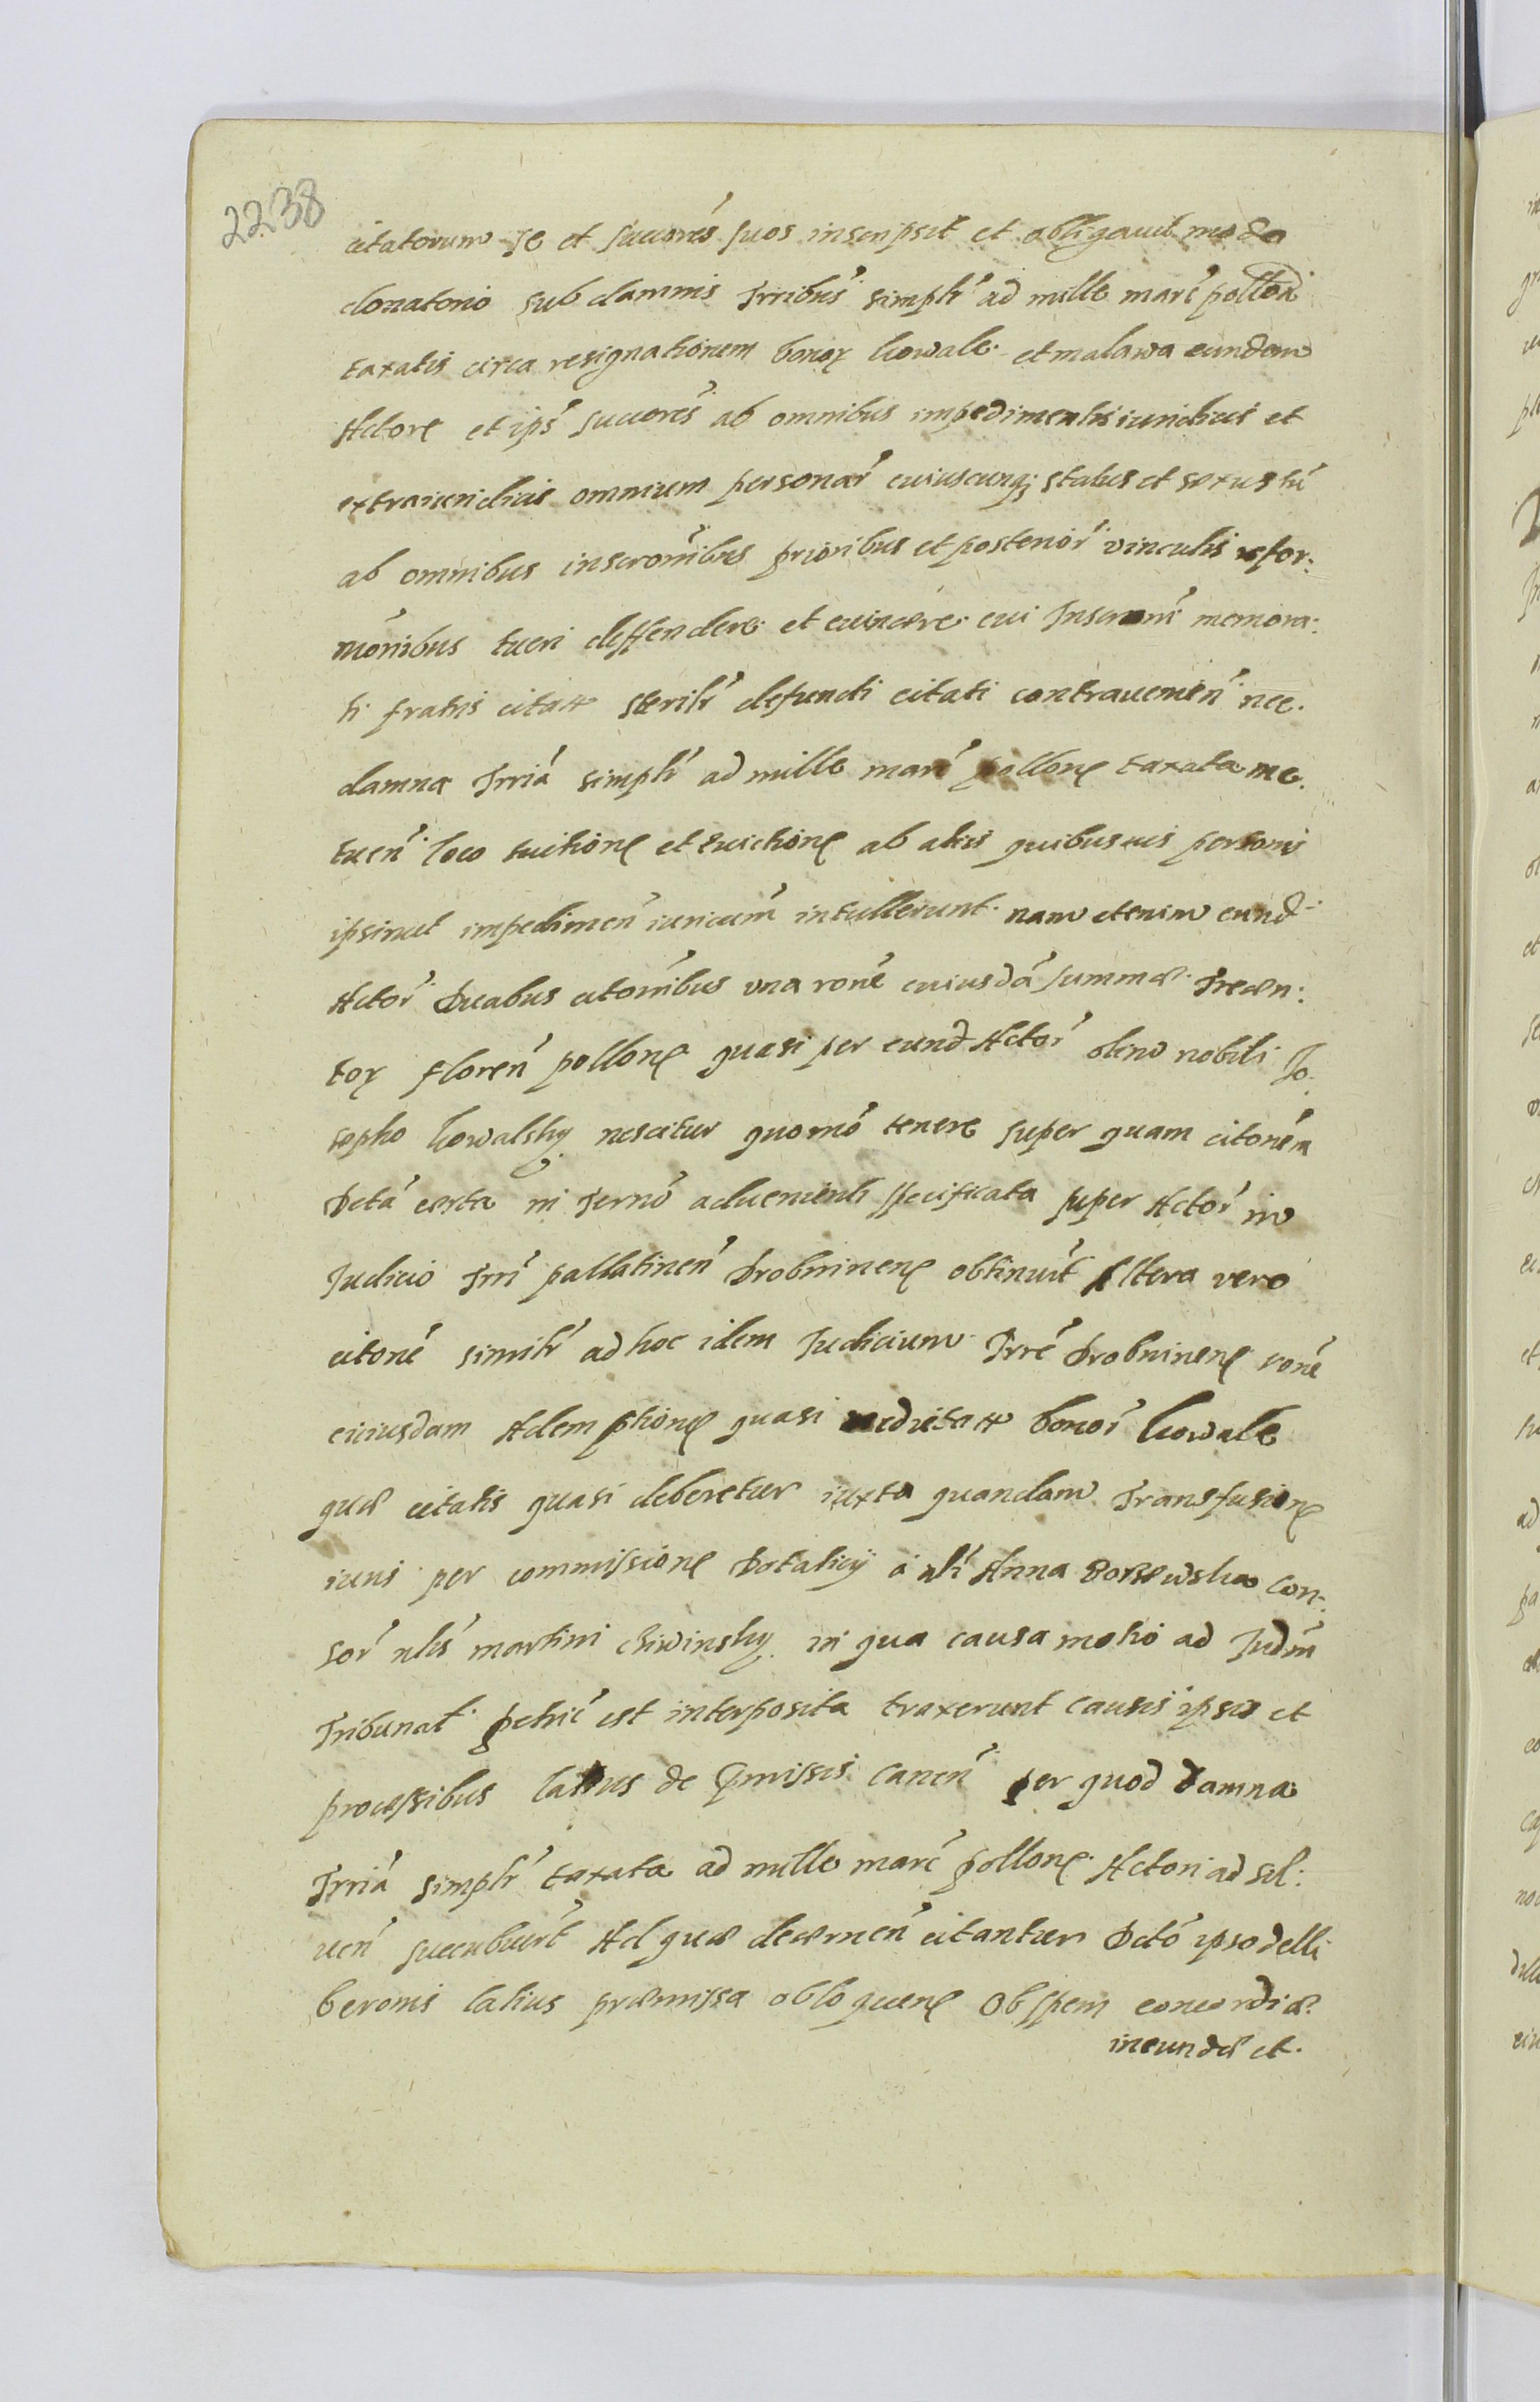 2238
citatorum se et succores suos inscripsit et obligavit modo
donatorio sub damnis Trribus simplr ad mille marc pollon
taxatis circa resignationem bonor kowale et malawa eundem
Actore et ips succores ab omnibus impedimentis iuridicis et
extraiuridicis omnium personar cuiuscunq status et sexus tu
ab omnibus inscronibus prioribus et posterior vinculis refor:
monibus tueri deffendere et evincere cui Inscroni memora:
ti fratris citatt sterilr defuncti citati contravenien nec
damna Trria simplr ad mille marc pollone taxata me.
tuen loco tuitione et Evictione ab aliis quibusvis personis
ipsimet impedimen iuricum intullerunt nam etenim eund
Actor Duabus citonibus una rone cuiusda summæ Trecen:
tor floren pollone quasi per eund Actor olim nobili Jo.
sepho kowalsky nescitur quomo tenere super quam citonem
Dcta certa in Termo advenienti specificata super Actor in
Judicio Trri pallatinen Drobninene obtinuit Altera vero
citone similr ad hoc idem Judicium Trre Drobninene rone
cuiusdam Ademptione quasi medietatt bonor kowale
quæ citatis quasi deberetur iuxta quandam Transfusione
iuris per commissione Dotalicy a nli Anna Borzewska Con:
sor nlis martini chiwinsky in qua causa motio ad Judm
Tribunal petric est interposita traxerunt causis ipsis et
processibus latius de pmissis canen per quod damna
Trria simplr taxata ad mille marc pollone Actori ad sol:
ven succubuert Ad quæ decernen citantur Dcto ipso delli
beronis latius præmissa obloquene Ob spem concordiæ
ineundæ et